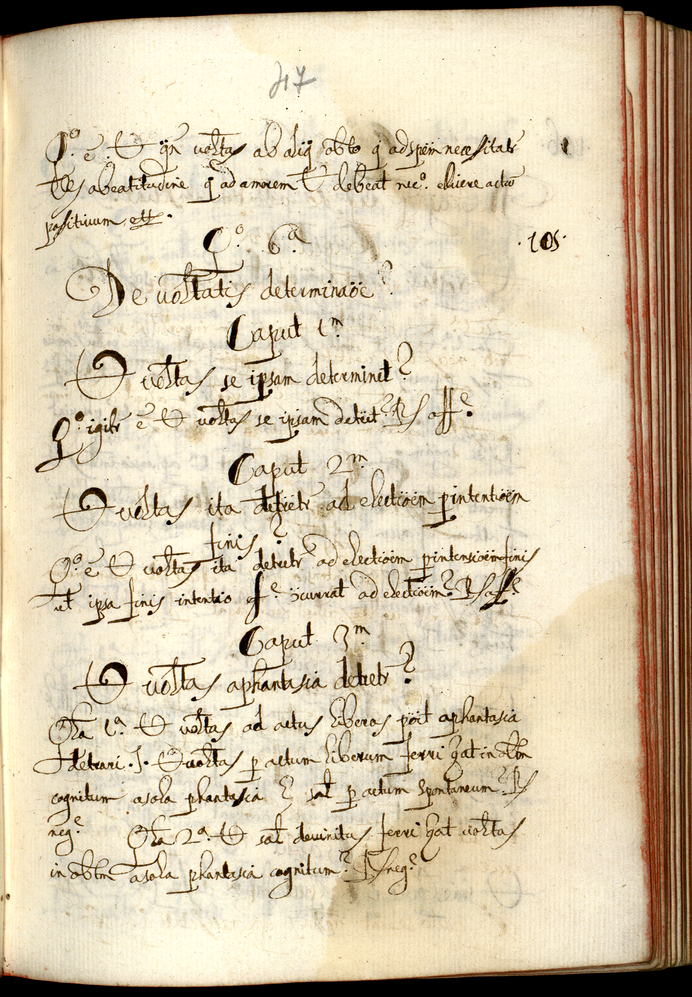 47
Q.º ē U qn volt̄as ab aliq̄ obto q̄ ad speīm necessitatr
beatitudine q̄ ad amorem U debeat nec.º elicere actū
positivum
Q.º 6.ª
.105.
De voltatis determinaōe?
Caput 1.m
U voltas se ipsam determinet?
Q.º igitr ē U voltas se ipsam detēt? R/ aff.e
Caput 2.m
U voltas ita detietr ad electioēm p intentioēm
finis?
Q.º ē U voltas ita detietr ad electioēm p intensioēm finis
ut ipsa finis intentio ɔcurrat ad electioēm? R/ aff.e
Caput 3.m
U voltas a phantasia detietr?
1.ª U voltas ad actus liberos pōit a phantasia
detrari .I. U voltas p actum liberum ferri q̄at in obtm
cognitum a sola phantasia salt p actum spontaneum? R/
neg.e
2.ª U salt devinitus ferri q̄at voltas
in obtm a sola phantasia cognitum? R/ neg.e